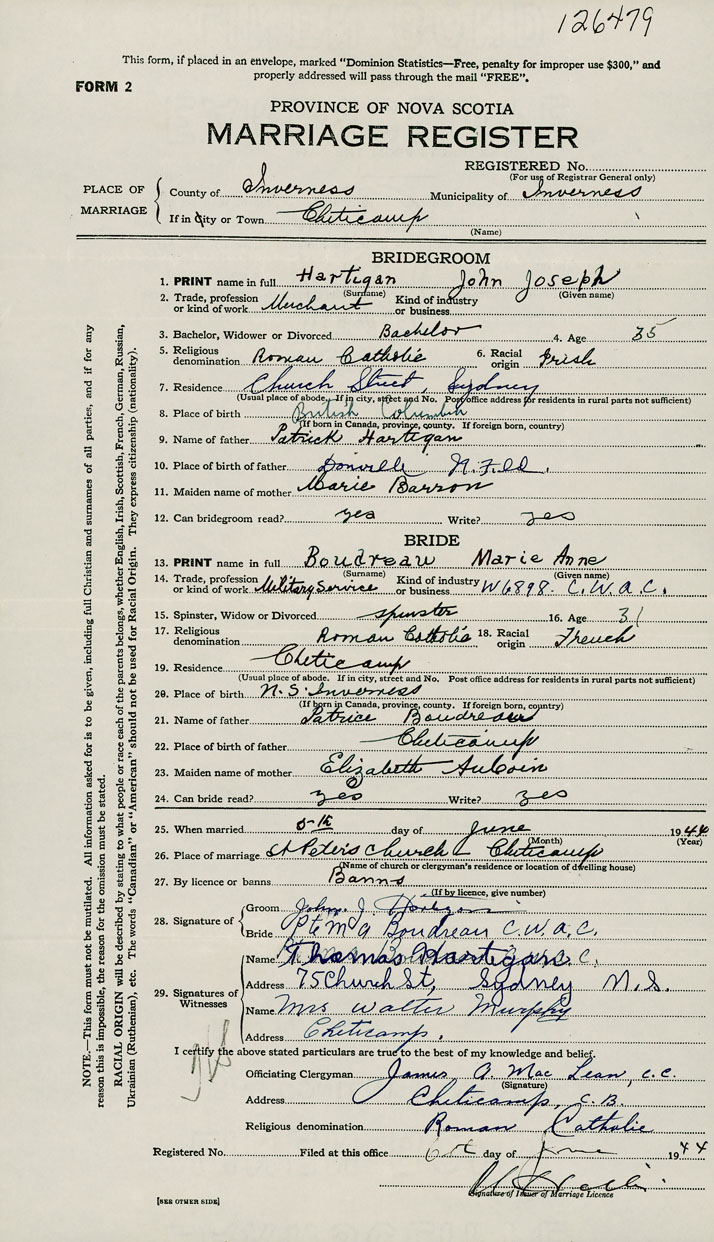 126479
This form, if placed in an envelope, marked "Dominion Statistics—Free, penalty for improper use $300," and
properly addressed will pass through the mail "FREE".
FORM 2
PROVINCE OF NOVA SCOTIA
MARRIAGE REGISTER
REGISTERED No.
(For use of Registrar General only)
PLACE OF MARRIAGE
County of Inverness Municipality of Inverness
If in City or Town Cheticamp
(Name)
BRIDEGROOM
1. PRINT name in full Hartigan John Joseph
(Surname) (Given name)
2. Trade, profession or kind of work Merchant Kind of industry or business
3. Bachelor, Widower or Divorced Bachelor 4. Age 35
5. Religious denomination Roman Catholic 6. Racial origin Irish
7. Residence Church Street, Sydney
(Usual place of abode. If in city, street and No. Post office address for residents in rural parts not sufficient)
8. Place of birth British Columbia
(If born in Canada, province, county. If foreign born, country)
9. Name of father Patrick Hartigan
10. Place of birth of father Donville N.F.ld.
11. Maiden name of mother Marie Barron
12. Can bridegroom read? yes Write? yes
BRIDE
13. PRINT name in full Boudreau Marie Anne
(Surname) (Given name)
14. Trade, profession or kind of work Military Service Kind of industry or business W6898. C.W.A.C.
15. Spinster, Widow or Divorced spinster 16. Age 31
17. Religious denomination Roman Catholic 18. Racial origin French
19. Residence Cheticamp
(Usual place of abode. If in city, street and No. Post office address for residents in rural parts not sufficient)
20. Place of birth N.S. Inverness
(If born in Canada, province, county. If foreign born, country)
21. Name of father Patrice Boudreau
22. Place of birth of father Cheticamp
23. Maiden name of mother Elizabeth AuCoin
24. Can bride read? yes Write? yes
25. When married 5th day of June 1944
(Month) (Year)
26. Place of marriage St Peters Church Cheticamp
(Name of church or clergyman's residence or location of dwelling house)
27. By licence or banns Banns
(If by licence, give number)
28. Signature of
Groom John J. Hartigan
Bride Pte M A Boudreau C.W.A.C.
29. Signatures of Witnesses
Name Thomas Hartigan
Address 75 Church St, Sydney N.S.
Name Mrs Walter Murphy
Address Cheticamp.
I certify the above stated particulars are true to the best of my knowledge and belief.
Officiating Clergyman James A. MacLean, c.c.
(Signature)
Address Cheticamp, C.B.
Religious denomination Roman Catholic
Registered No. Filed at this office 6th day of June 1944
Signature of Issuer of Marriage Licence
[SEE OTHER SIDE]
NOTE.—This form must not be mutilated. All information asked for is to be given, including full Christian and surnames of all parties, and if for any
reason this is impossible, the reason for the omission must be stated.
RACIAL ORIGIN will be described by stating to what people or race each of the parents belongs, whether English, Irish, Scottish, French, German, Russian,
Ukrainian (Ruthenian), etc. The words "Canadian" or "American" should not be used for Racial Origin. They express citizenship (nationality).